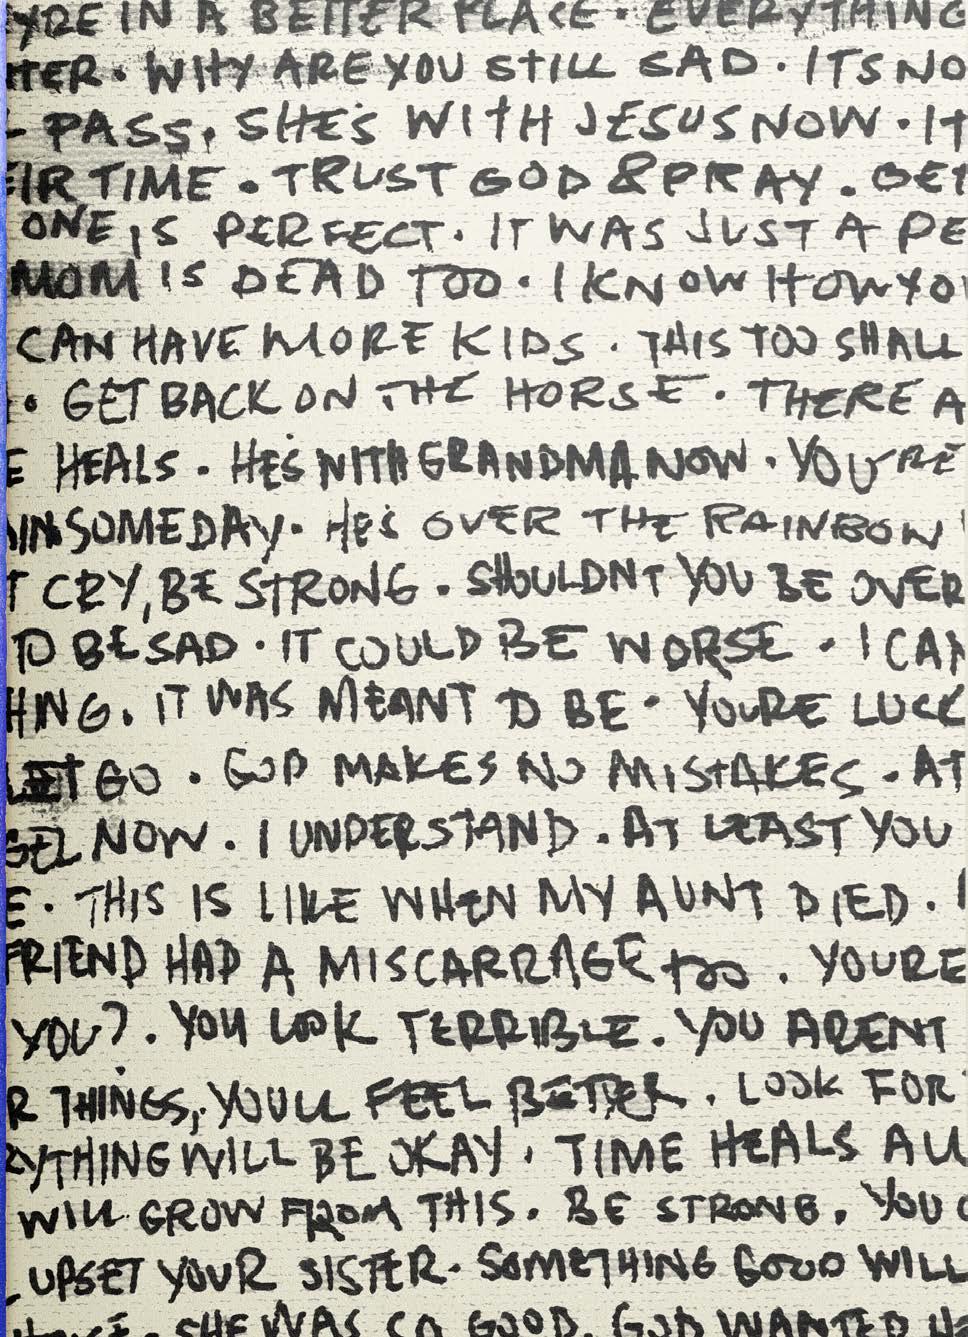 YRE IN A BETTER PLACE · EVERYTHING
TER · WHY ARE YOU STILL SAD · ITS NO
PASS. SHE'S WITH JESUS NOW · IT
EIR TIME · TRUST GOD & PRAY · GET
ONE IS PERFECT. IT WAS JUST A PE
MOM IS DEAD TOO · I KNOW HOW YO
CAN HAVE MORE KIDS · THIS TOO SHALL
· GET BACK ON THE HORSE · THERE A
E HEALS · HE'S WITH GRANDMA NOW · YOU'RE
AIN SOMEDAY · HE'S OVER THE RAINBOW
T CRY, BE STRONG · SHOULDNT YOU BE OVER
TO BE SAD · IT COULD BE WORSE · I CAN
HING. IT WAS MEANT TO BE · YOURE LUCK
LET GO · GOD MAKES NO MISTAKES · AT
GEL NOW. I UNDERSTAND. AT LEAST YOU
E · THIS IS LIKE WHEN MY AUNT DIED.
FRIEND HAD A MISCARRAGE too. YOURE
YOU?. YOU LOOK TERRIBLE. YOU ARENT
R THINGS, YOULL FEEL BETTER. LOOK FOR
RYTHING WILL BE OKAY. TIME HEALS ALL
WILL GROW FROM THIS. BE STRONG. YOU
UPSET YOUR SISTER. SOMETHING GOOD WILL
SHE WAS SO GOOD. GOD WANTED HE